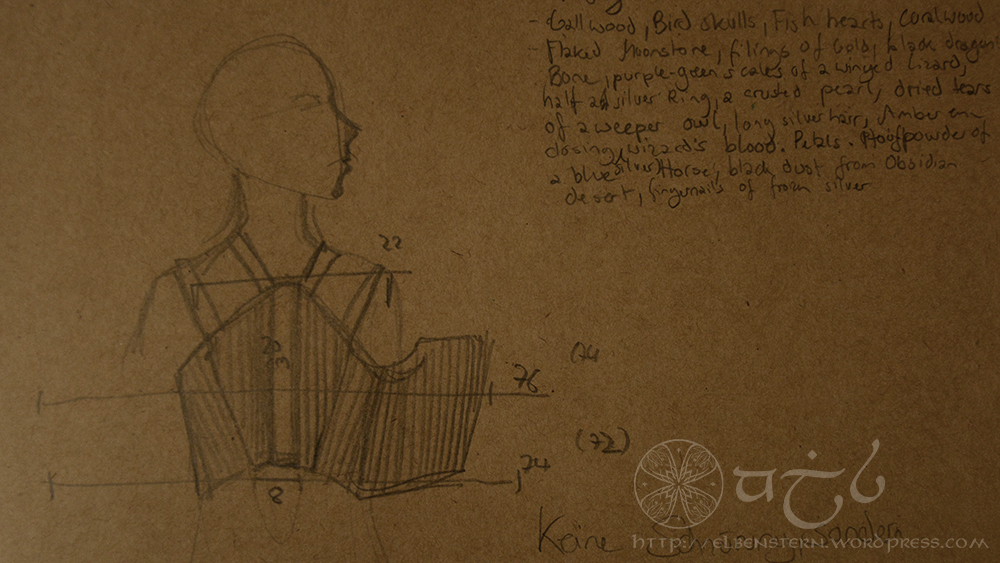 - Gallwood, Bird skulls, Fish hearts, Coralwood
- Flaked Moonstone, filings of Gold, black dragon
Bone, purple-green scales of a winged lizard,
half a silver Ring, a crusted pearl, dried tears
of a weeper owl, long silver hair, Amber en-
closing, wizard's blood. Petals. Hoof powder of
a blue silver Horse, black dust from Obsidian
desert, fingernails of frozn silver
22
20
76
(74
(72)
74
8
Keine
http://elbenstern.wordpress.com